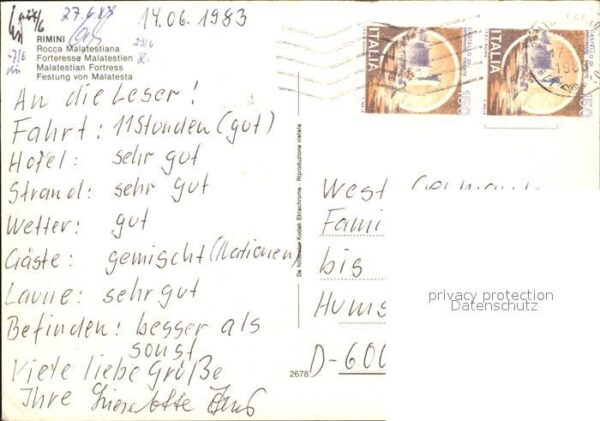 27.6.83
14.06.1983
RIMINI
Rocca Malatestiana
Forteresse Malatestien
Malatestian Fortress
Festung von Malatesta
An die Leser!
Fahrt: 11 Stunden (gut)
Hotel: sehr gut
Strand: sehr gut
Wetter: gut
Gäste: gemischt (Nationen)
Laune: sehr gut
Befinden: besser als
sonst
Viele liebe Grüße
Ihre
De fotocolor Kodak Ektachrome - Riproduzione vietata
2678
ITALIA
150
ITALIA
150
West
Fami
bis
Hums
D-600
privacy protection
Datenschutz